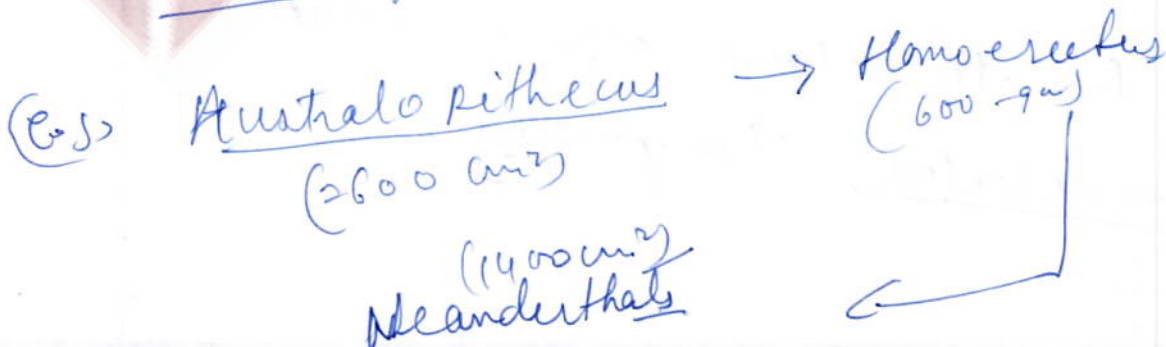 (e.g.) Australo pithecus → Homo erectus
(2600 cm²) (600 - 900)
(1400 cm²)
Neanderthals